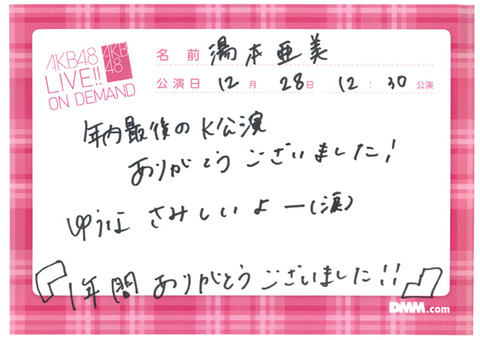 AKB48
LIVE!!
ON DEMAND
AKB
48
名前 湯本亜美
公演日 12月 28日 12:30公演
年内最後のK公演
ありがとうございました!
ゆうな さみしいよー(涙)
1年間ありがとうございました!!
DMM.com